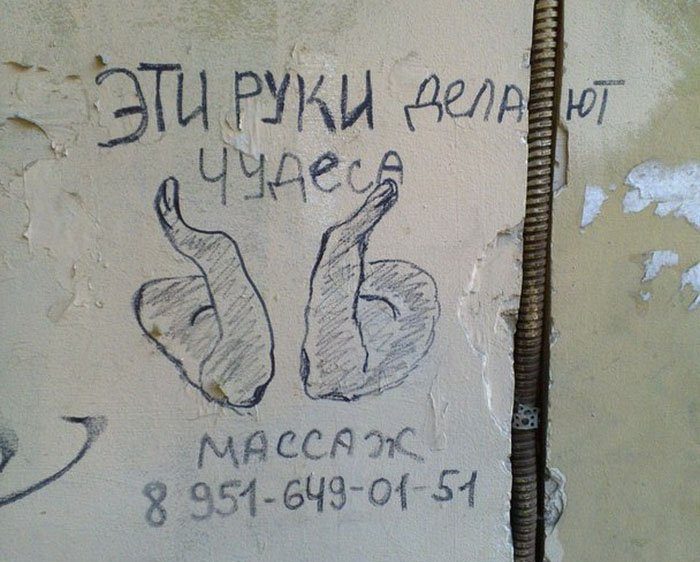 ЭТИ РУКИ делают
чудеса
МАССАЖ
8 951-649-01-51